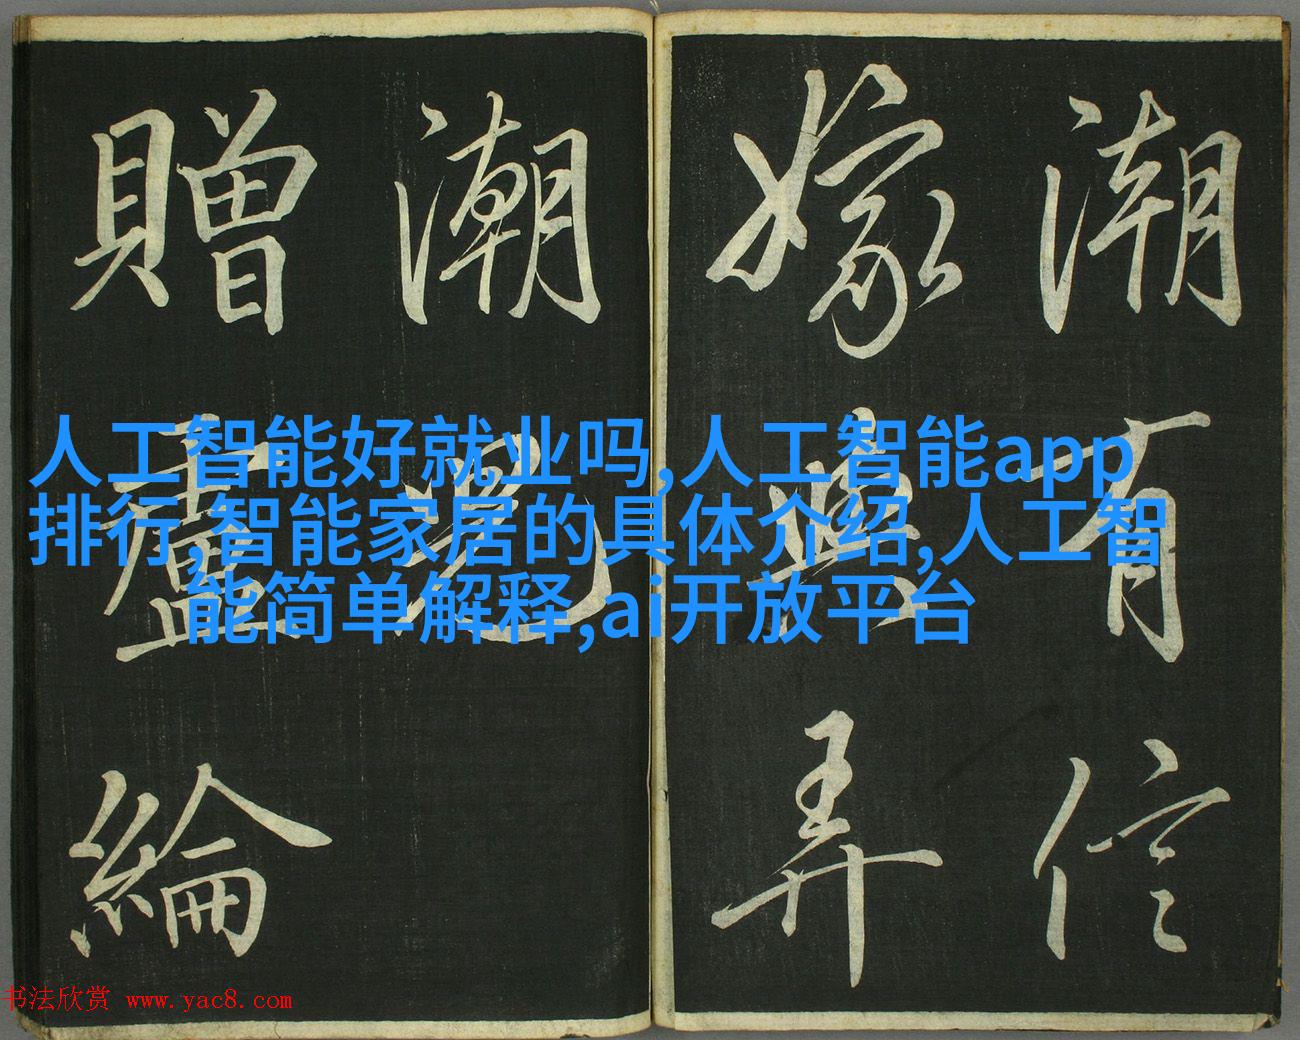 潮有信
嫁與弄
潮兒
贈盧綸
人工智能好就业吗,人工智能app
排行,智能家居的具体介绍,人工智
能简单解释,ai开放平台
书法欣赏 www.yac8.com